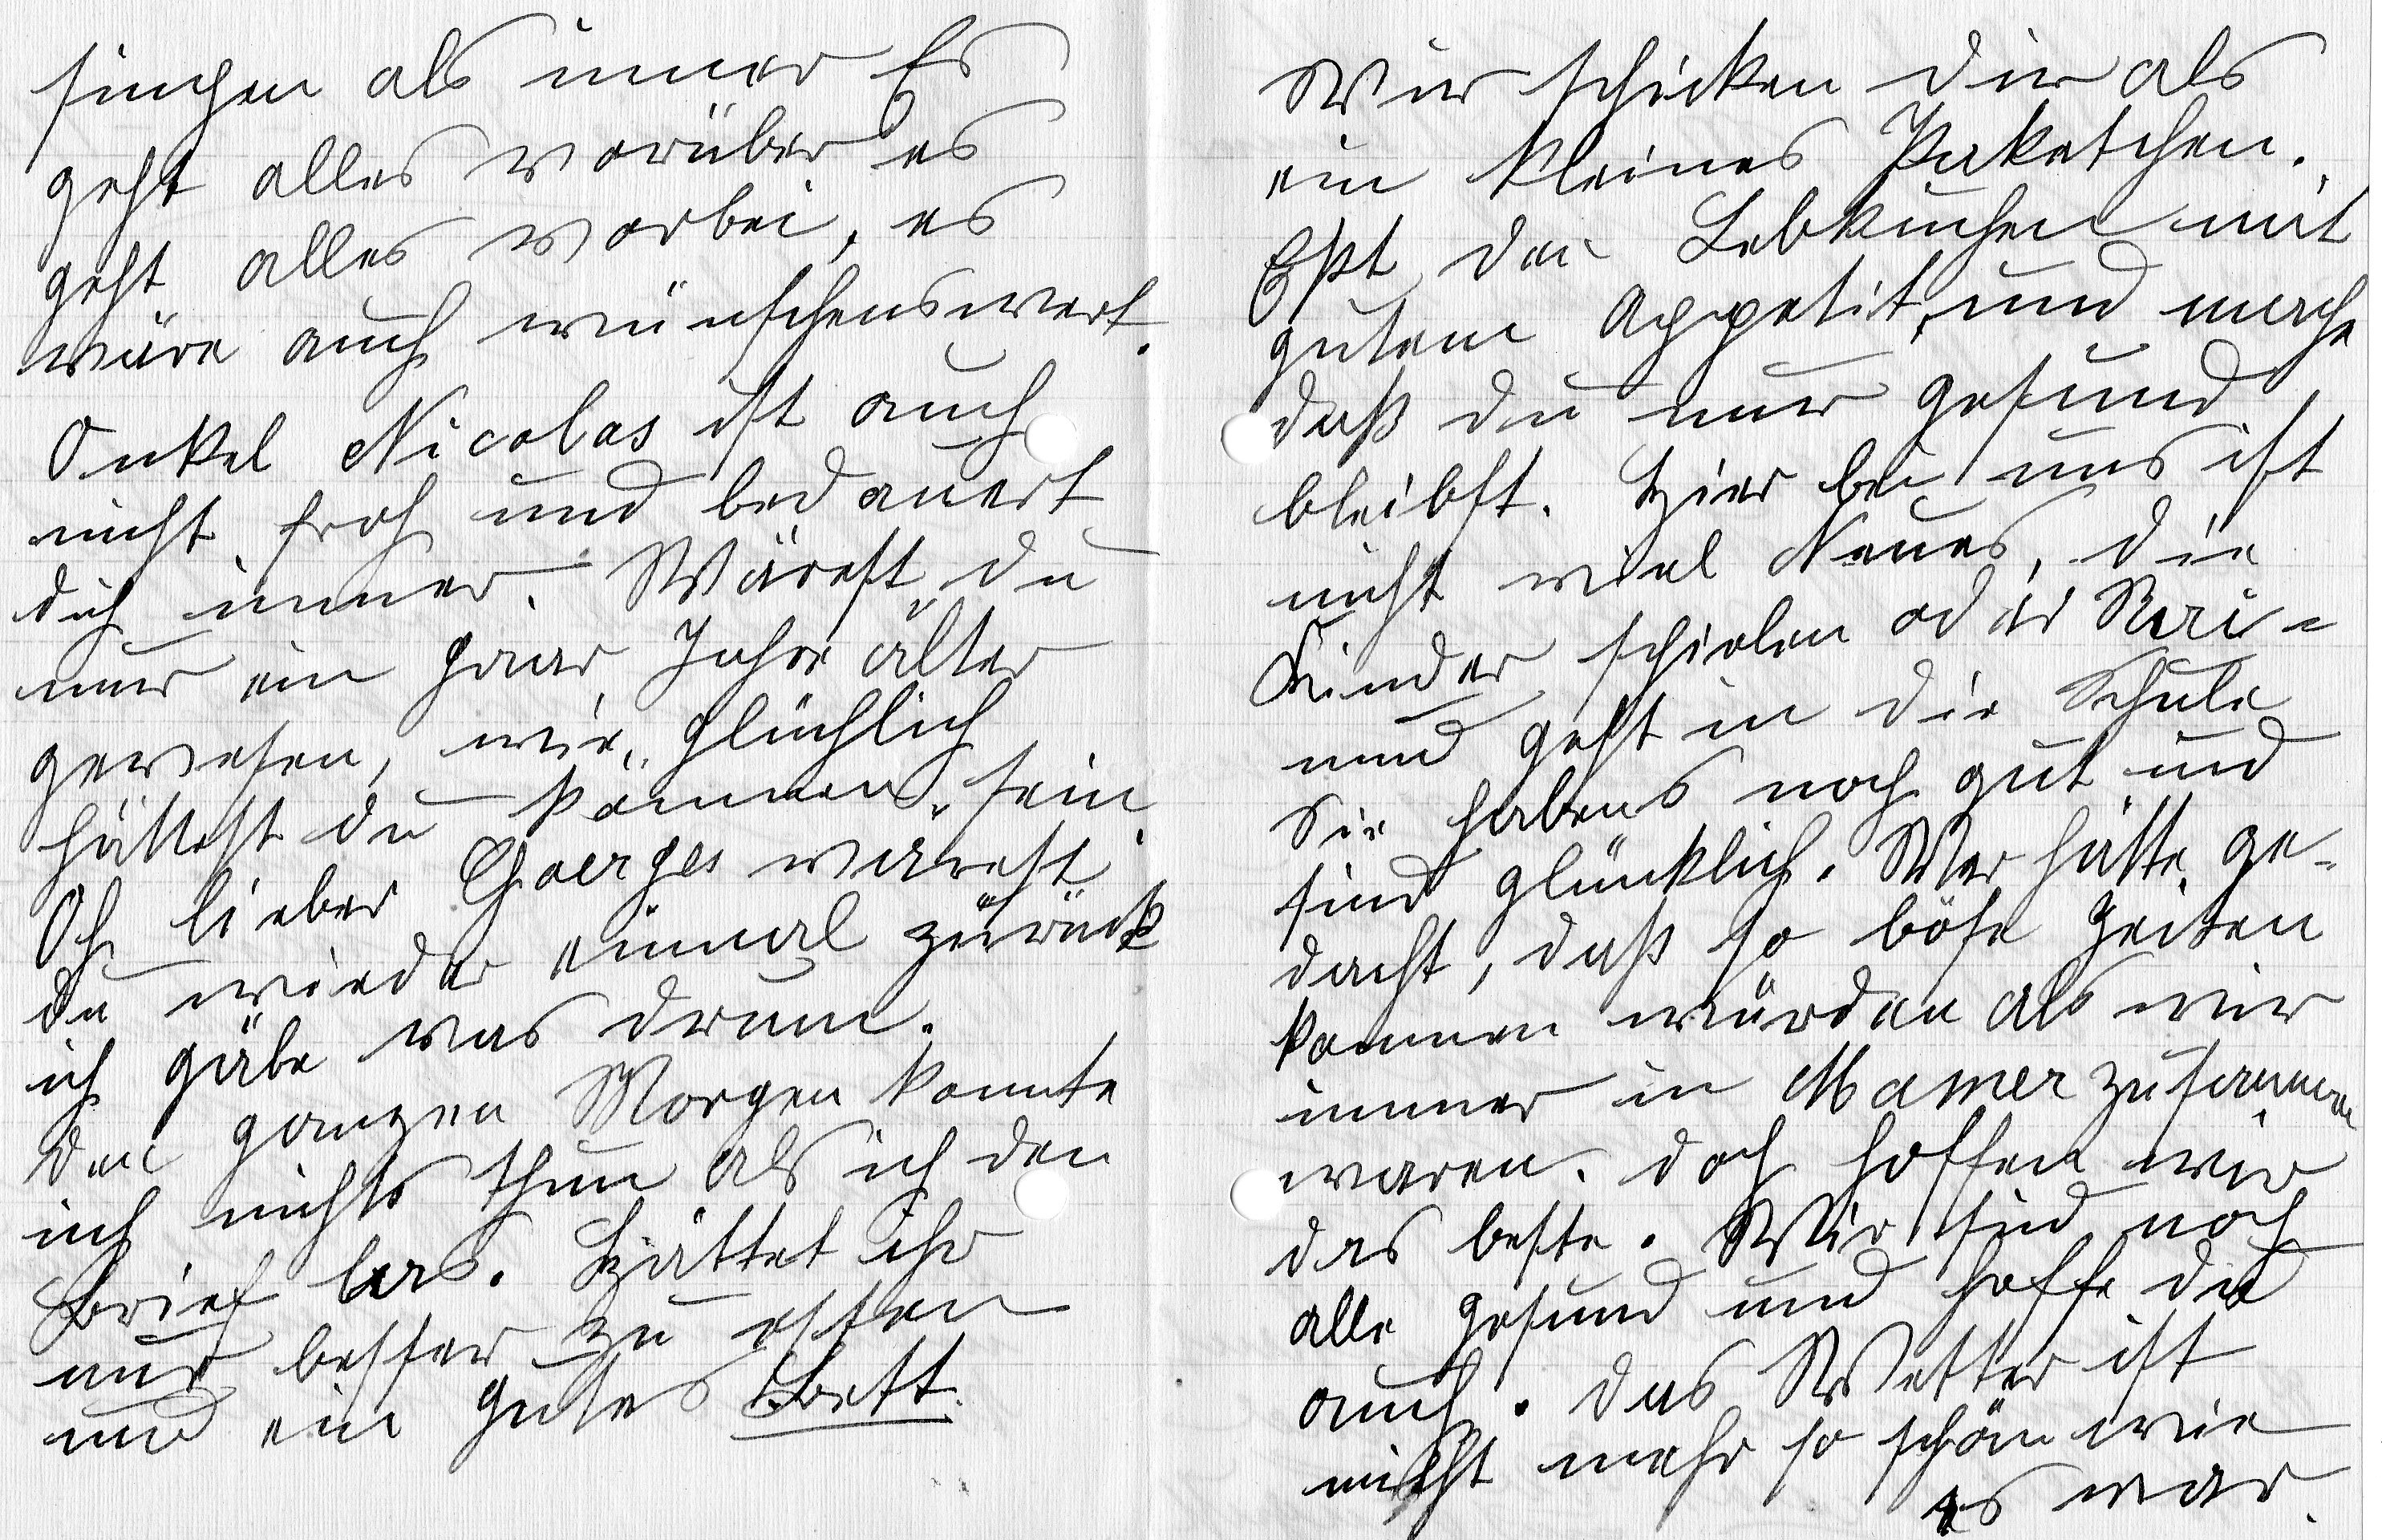 singen als immer Es
geht alles vorüber es
geht alles vorbei, es
wäre auch wünschenswert.
Onkel Nicolas ist auch
nicht froh und bedauert
dich immer. Wärest du
nur ein paar Jahre älter
gewesen, wie glücklich
hättest du können sein.
Oh lieber Goerges wärest
du wieder einmal zurück
ich gäbe was drum.
Den ganzen Morgen konnte
ich nichts thun als ich den
Brief las. Hättet ihr
nur besser zu essen
und ein gutes Bett.
Wir schicken dir als
ein kleines Paketchen.
Eßt den Lebkuchen mit
gutem Appetit, und mache
daß du nur gesund
bleibst. Hier bei uns ist
nicht viel Neues, die
Kinder spielen oder
und geht in die Schule
Sie habens noch gut und
sind glücklich. Wer hätte ge-
dacht, daß so böse Zeiten
kommen würden als wir
immer in Mamer zusammen
waren. Doch hoffen wir
das beste. Wir sind noch
alle gesund und hoffe du
auch. Das Wetter ist
nicht mehr so schön wie
es war.